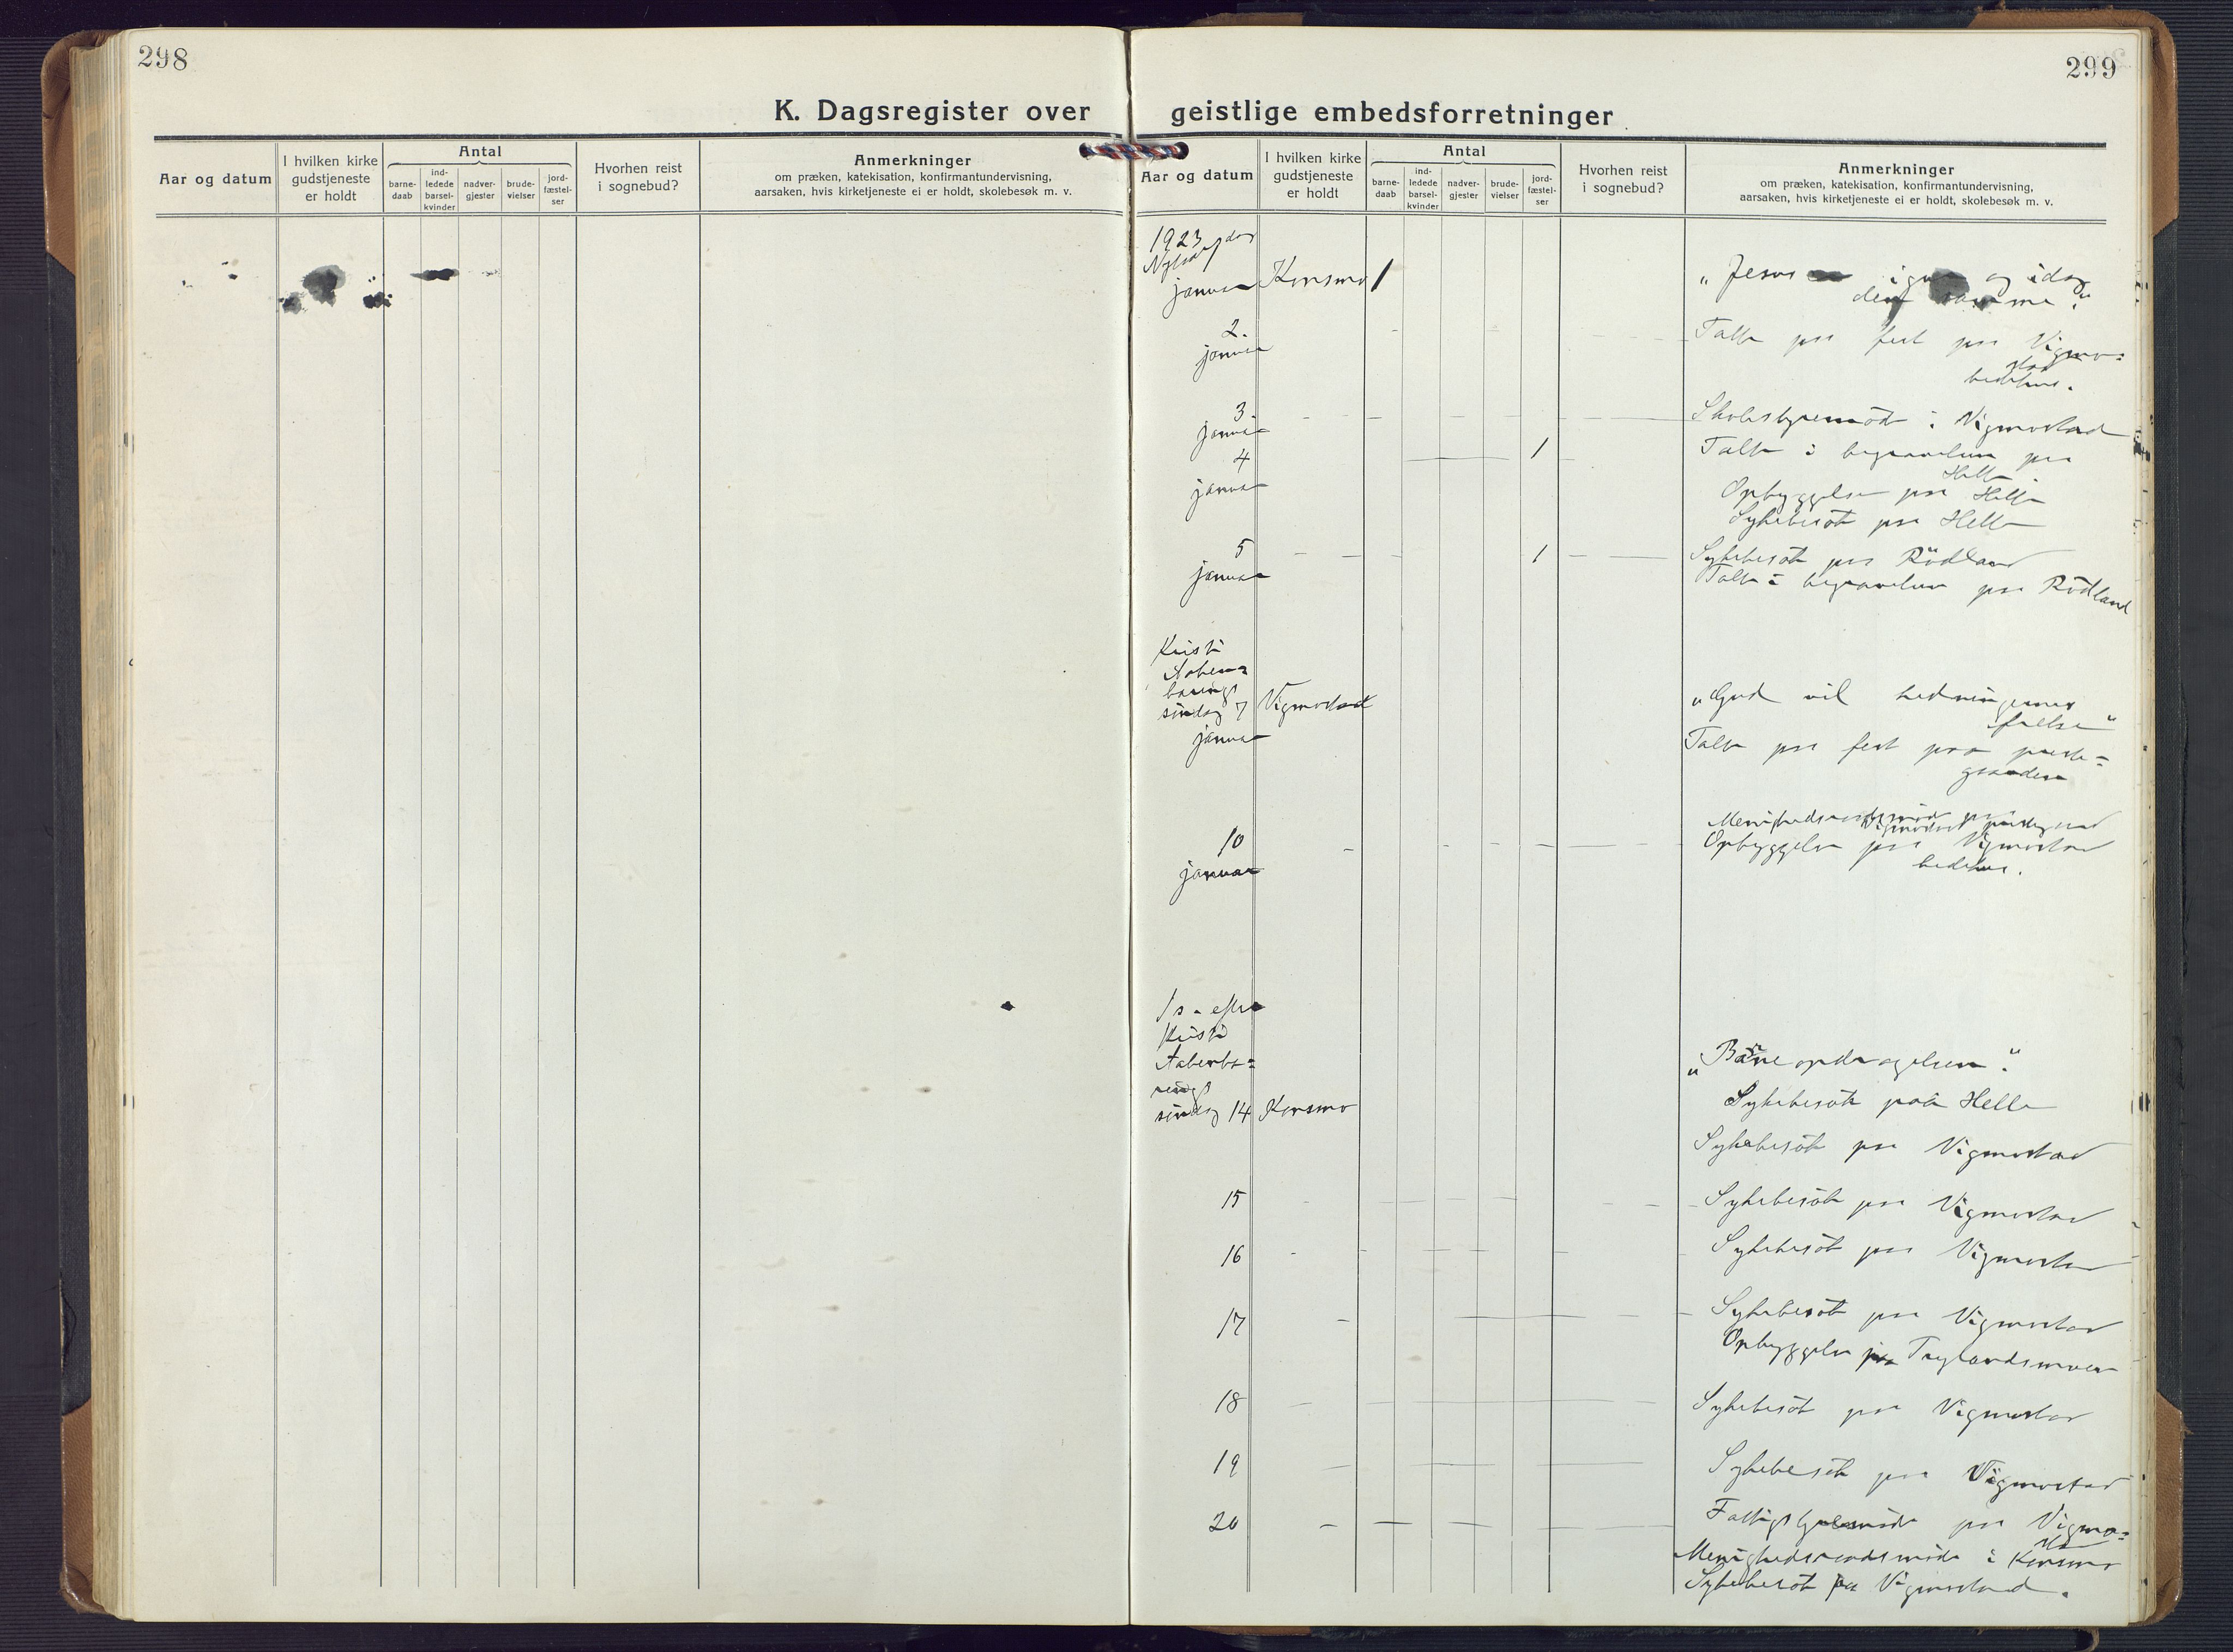 298
K. Dagsregister over
Aar og datum
I hvilken kirke
gudstjeneste
er holdt
Antal
barne-
daab
ind-
ledede
barsel-
kvinder
nadver-
gjester
brude-
vielser
jord-
fæstel-
ser
Hvorhen reist
i sognebud?
Anmerkninger
om præken, katekisation, konfirmantundervisning,
aarsaken, hvis kirketjeneste ei er holdt, skolebesøk m. v.
299
geistlige embedsforretninger
Aar og datum
I hvilken kirke
gudstjeneste
er holdt
Antal
barne-
daab
ind-
ledede
barsel-
kvinder
nadver-
gjester
brude-
vielser
jord-
fæstel-
ser
Hvorhen reist
i sognebud?
Anmerkninger
om præken, katekisation, konfirmantundervisning,
aarsaken, hvis kirketjeneste ei er holdt, skolebesøk m. v.
1923
januar Konsmo 1 "Jesus igaar og idag
den samme".
2. Talte paa fest paa Vigmo=
januar stad
bedehus.
3. Skolestyremöde i Vigmostad
januar
4 1 Talte i begravelse paa
januar Helle
Opbyggelse paa Helle
Sykebesök paa Helle
5 1 Sykebesök paa Rödland
januar Talte i begravelse paa Rödland
Kristi
Aaben=
barings
söndag 7 Vigmostad "Gud vil hedningenes
januar frelse"
Talte paa fest paa preste=
gaarden
Menighedsraadsmöde paa
Vigmostad prestegaard
10 Opbyggelse paa Vigmostad
januar bedehus.
1 s. efter
Kristi
Aabenba=
rings
söndag 14 Konsmo "Barneopdragelsen".
Sykebesök paa Helle
Sykebesök paa Vigmostad
15 Sykebesök paa Vigmostad
16 Sykebesök paa Vigmostad
17 Sykebesök paa Vigmostad
Opbyggelse paa Trylandsmoen
18 Sykebesök paa Vigmostad
19 Sykebesök paa Vigmostad
20 Fattigstyremöde paa Vigmo=
stad
Menighedsraadsmöde i Konsmo
Sykebesök paa Vigmostad.